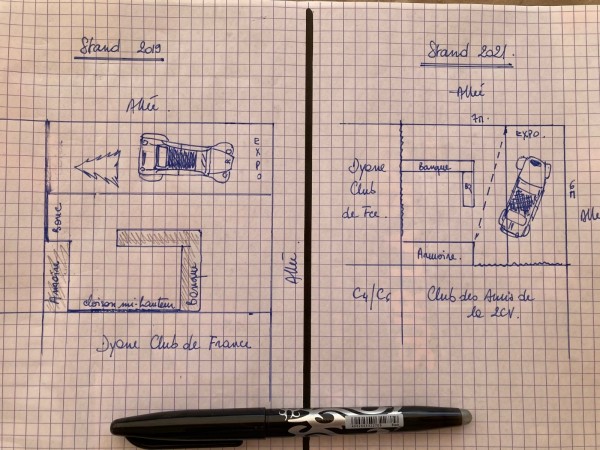 Stand 2019
Allée.
EXPO
Armoire
cloison mi-hauteur
Banque
Allée
Dyane Club de France
Stand 2021.
Allée
7m.
EXPO.
Dyane
Club
de Fce.
Banque
6m
Allée
Armoire.
C4/C6
Club des Amis de
la 2CV.